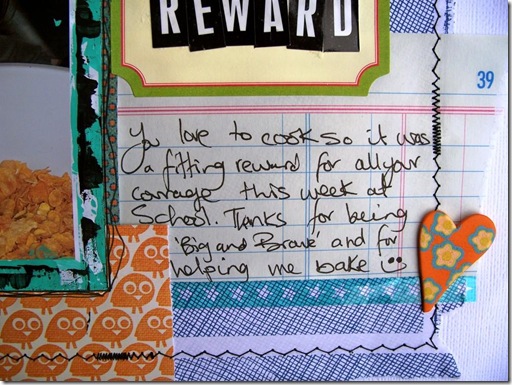 REWARD
39
You love to cook so it was
a fitting reward for all your
courage this week at
School. Thanks for being
'Big and Brave' and for
helping me bake